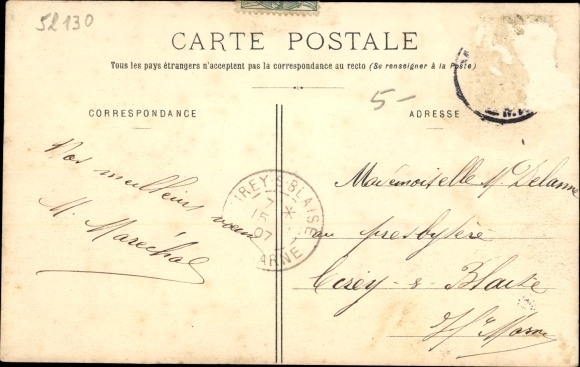 52130
CARTE POSTALE
Tous les pays étrangers n'acceptent pas la correspondance au recto (Se renseigner à la Poste)
5-
CORRESPONDANCE
ADRESSE
Vos meilleurs vœux
M. Maréchal
IREY-S-BLAISE
7
15
07
ARNE
Mademoiselle M. Delanne
au presbytère
Cirey-s-Blaise
Hte Marne